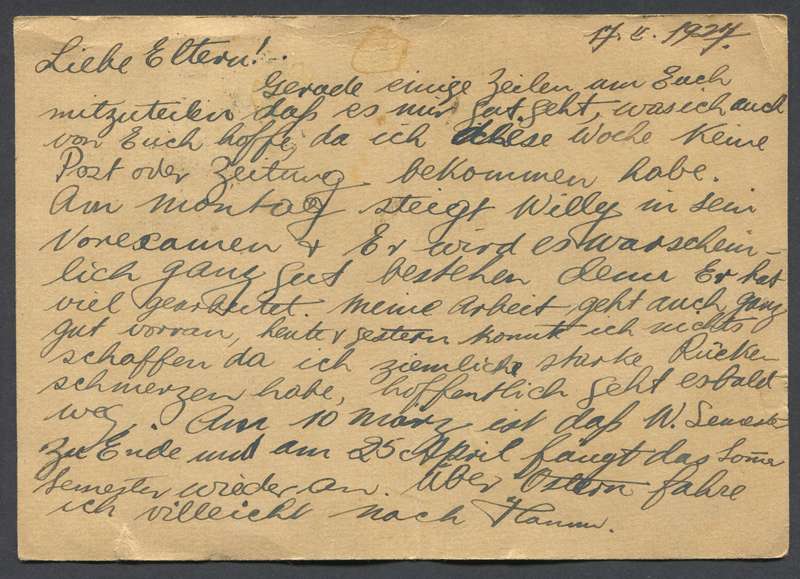 17. II. 1927.
Liebe Eltern!
Gerade einige Zeilen um Euch
mitzuteilen daß es mir gut geht, was ich auch
von Euch hoffe, da ich diese Woche keine
Post oder Zeitung bekommen habe.
Am Montag steigt Willy in sein
Vorexamen & Er wird es warschein-
lich ganz gut bestehen denn Er hat
viel gearbeitet. Meine Arbeit geht auch ganz
gut vorran, heute & gestern konnte ich nichts
schaffen da ich ziemliche starke Rücken
schmerzen habe, hoffentlich geht es bald
weg. Am 10 März ist das W. Semester
zu Ende und am 25 April fängt das Somer
Semester wieder an. Über Ostern fahre
ich villeicht nach Hamm.